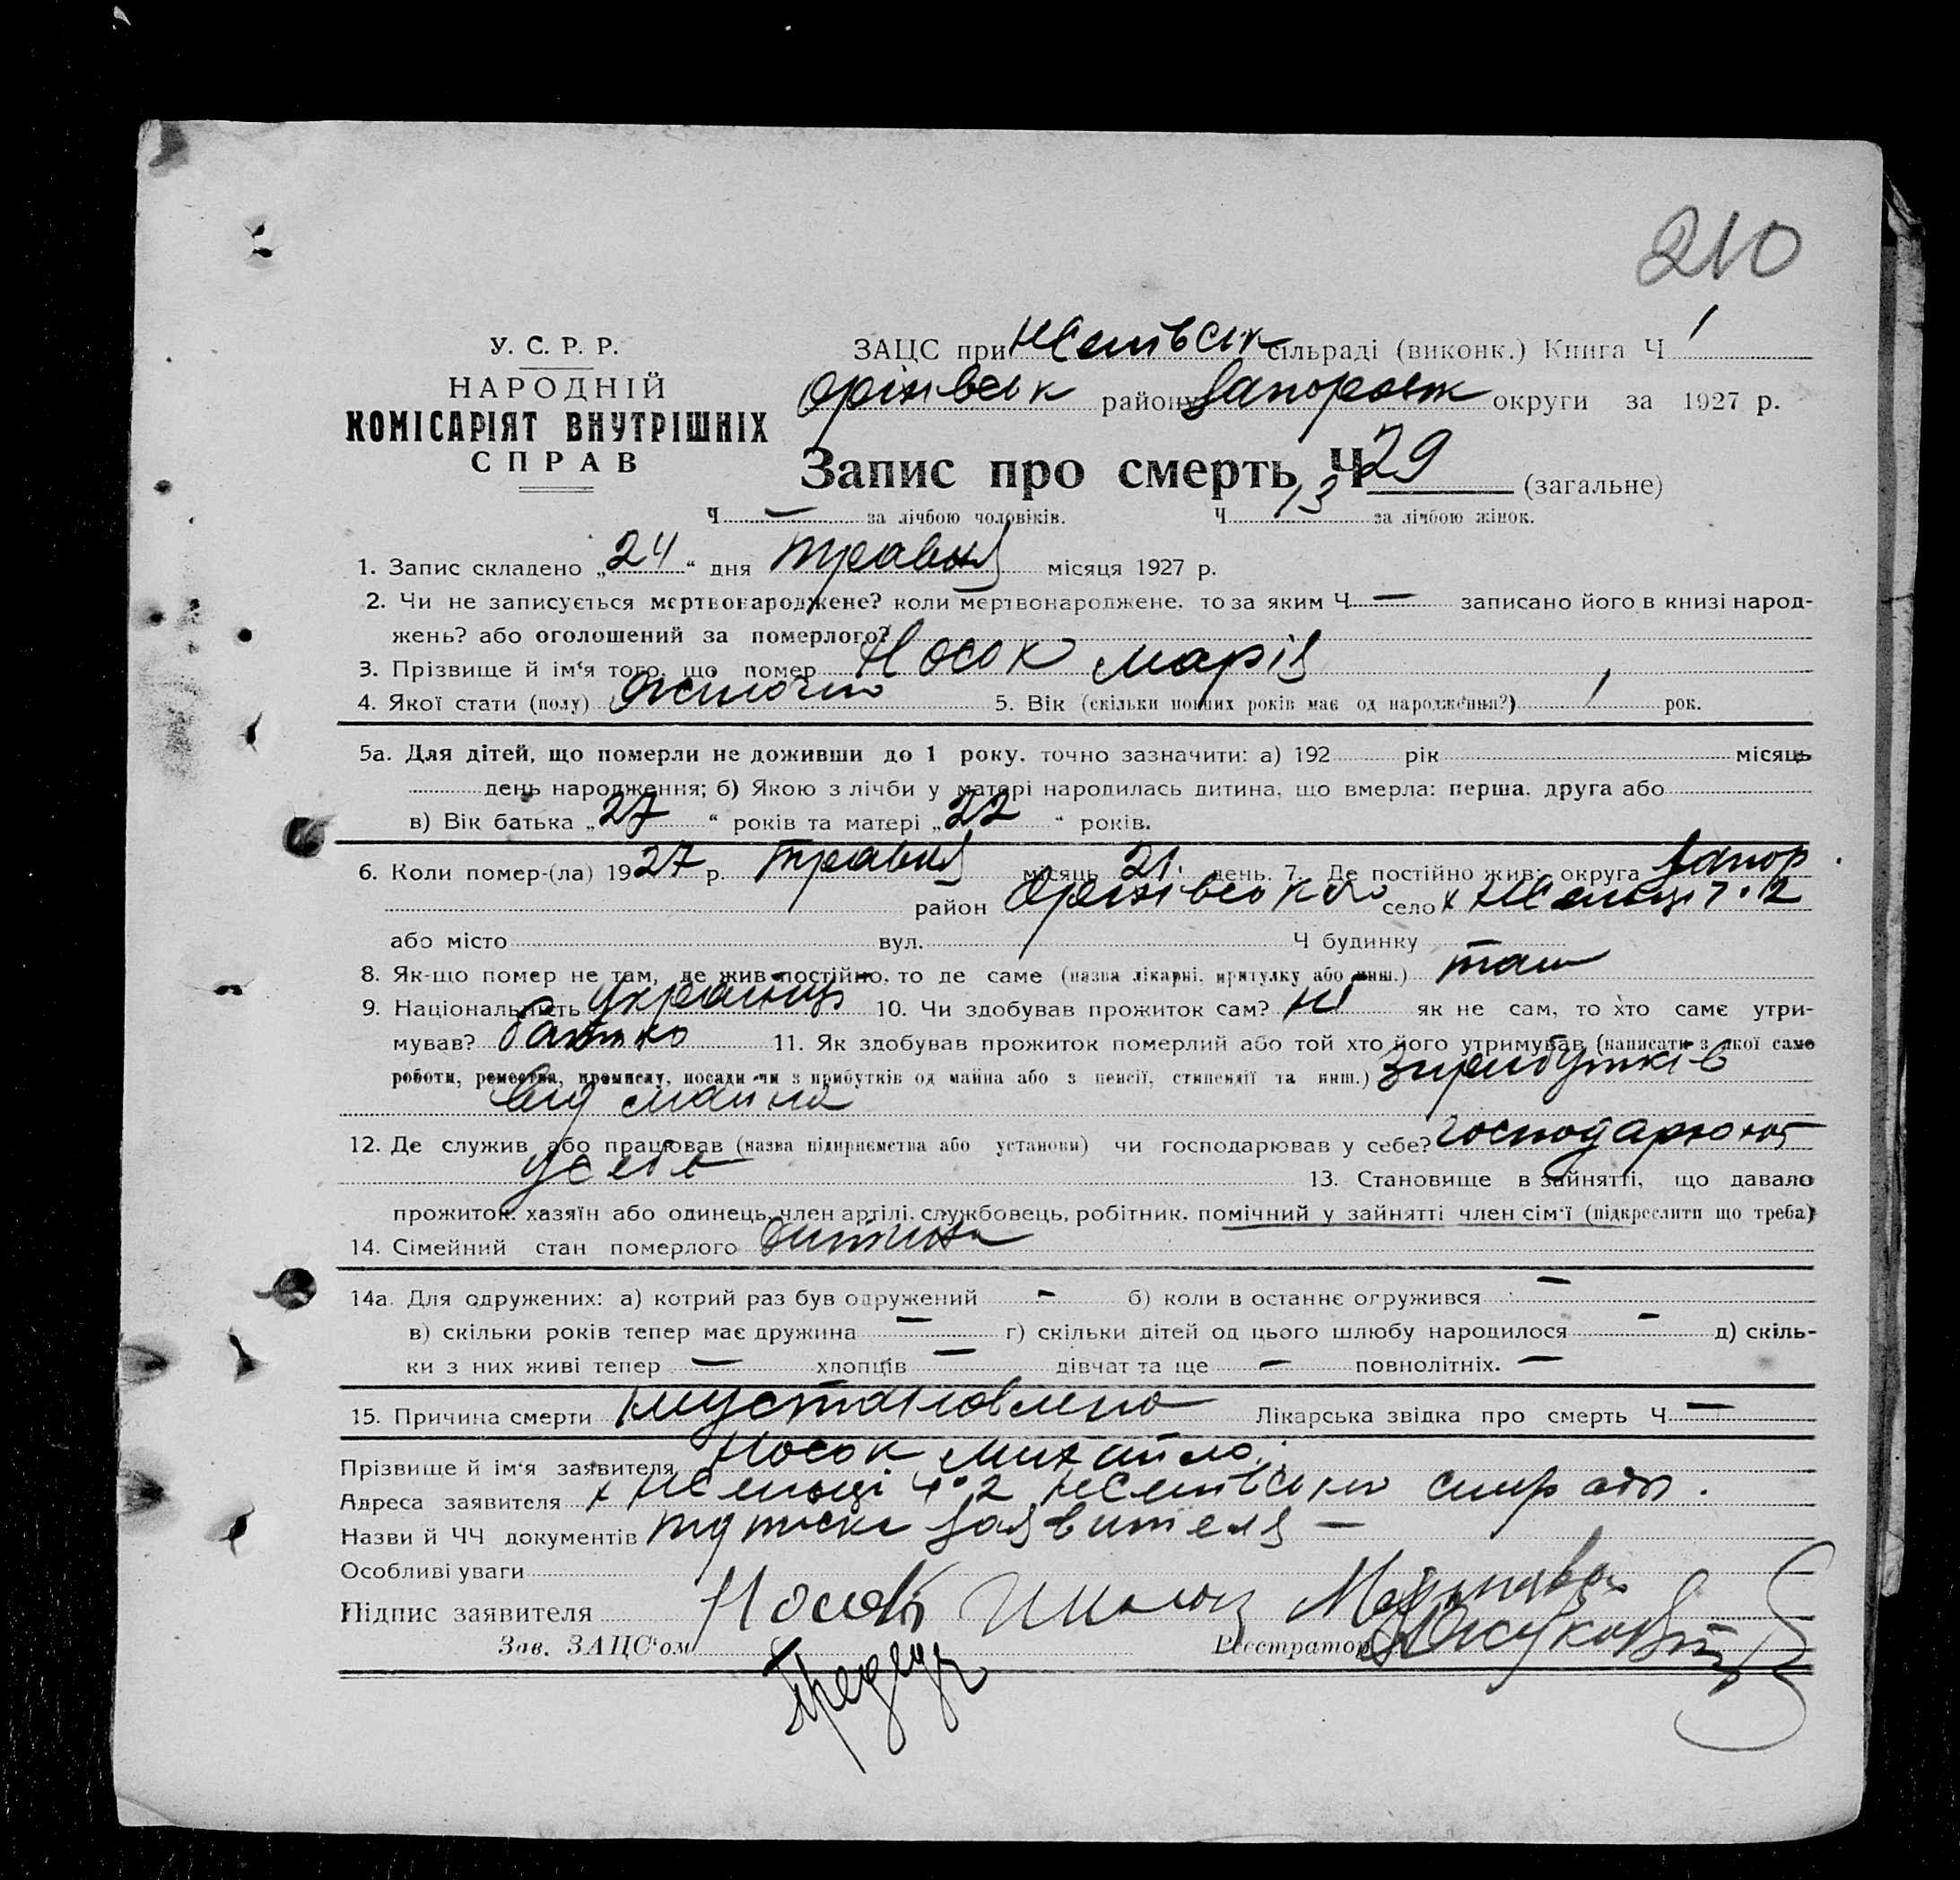 210
У. С. Р. Р.
НАРОДНІЙ
КОМІСАРІЯТ ВНУТРІШНІХ
СПРАВ
ЗАЦС при сільраді (виконк.) Книга Ч 1
Оріхівськ району Запорож округи за 1927 р.
Запис про смерть Ч 29 (загальне)
Ч — за лічбою чоловіків. Ч 13 за лічбою жінок.
1. Запис складено „24“ дня травня місяця 1927 р.
2. Чи не записується мертвонароджене? коли мертвонароджене, то за яким Ч — записано його в книзі народ-
жень? або оголошений за померлого?
3. Прізвище й ім'я того, що помер Носок Марія
4. Якої стати (полу) жіночої 5. Вік (скільки повних років має од народження?) 1 рок.
5а. Для дітей, що померли не доживши до 1 року, точно зазначити: а) 192 рік місяць
день народження; б) Якою з лічби у матері народилась дитина, що вмерла: перша, друга або
в) Вік батька „27“ років та матері „22“ років.
6. Коли помер-(ла) 1927 р. травня місяць 21 день. 7. Де постійно жив: округа Запор.
район Оріхівсько село х ч. 2
або місто вул. Ч будинку
8. Як-що помер не там, де жив постійно, то де саме (назва лікарні, притулку або инш.) там
9. Національність українці 10. Чи здобував прожиток сам? ні як не сам, то хто саме утри-
мував? батько 11. Як здобував прожиток померлий або той хто його утримував (написати з якої само
роботи, ремества, промислу, посади чи з прибутків од майна або з пенсії, стипендії та инш.) з прибутків
від майна
12. Де служив або працював (назва підприємства або установи) чи господарював у себе? господарюют
у себе 13. Становище в зайнятті, що давало
прожиток: хазяїн або одинець, член артілі, службовець, робітник, помічний у зайнятті член сім'ї (підкреслити що треба)
14. Сімейний стан померлого дитина
14а. Для одружених: а) котрий раз був одружений — б) коли в останнє огружився —
в) скільки років тепер має дружина — г) скільки дітей од цього шлюбу народилося — д) скіль-
ки з них живі тепер — хлопців — дівчат та ще — повнолітніх. —
15. Причина смерти Лікарська звідка про смерть Ч —
Прізвище й ім'я заявителя Носок Михайло.
Адреса заявителя х ч. 2
Назви й ЧЧ документів підписки заявителя —
Особливі уваги
Підпис заявителя
Зав. ЗАЦС'ом Реєстратор